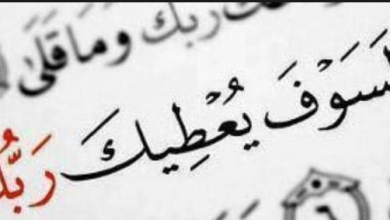 رَبُّكَ وَمَا قَلَىٰ
لَسَوْفَ يُعْطِيكَ رَبُّكَ